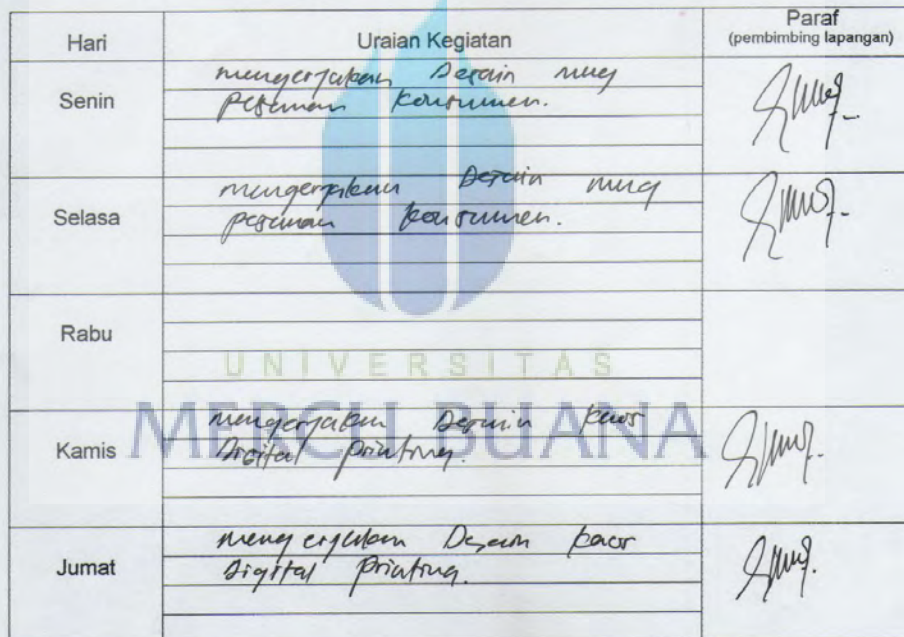 Hari Uraian Kegiatan Paraf
(pembimbing lapangan)
Senin mengerjakan Desain mug
pesanan konsumen.
Selasa mengerjakan Desain mug
pesanan konsumen.
Rabu
UNIVERSITAS
MERCU BUANA
Kamis mengerjakan Desain kaos
Digital printing.
Jumat mengerjakan Desain kaos
Digital printing.